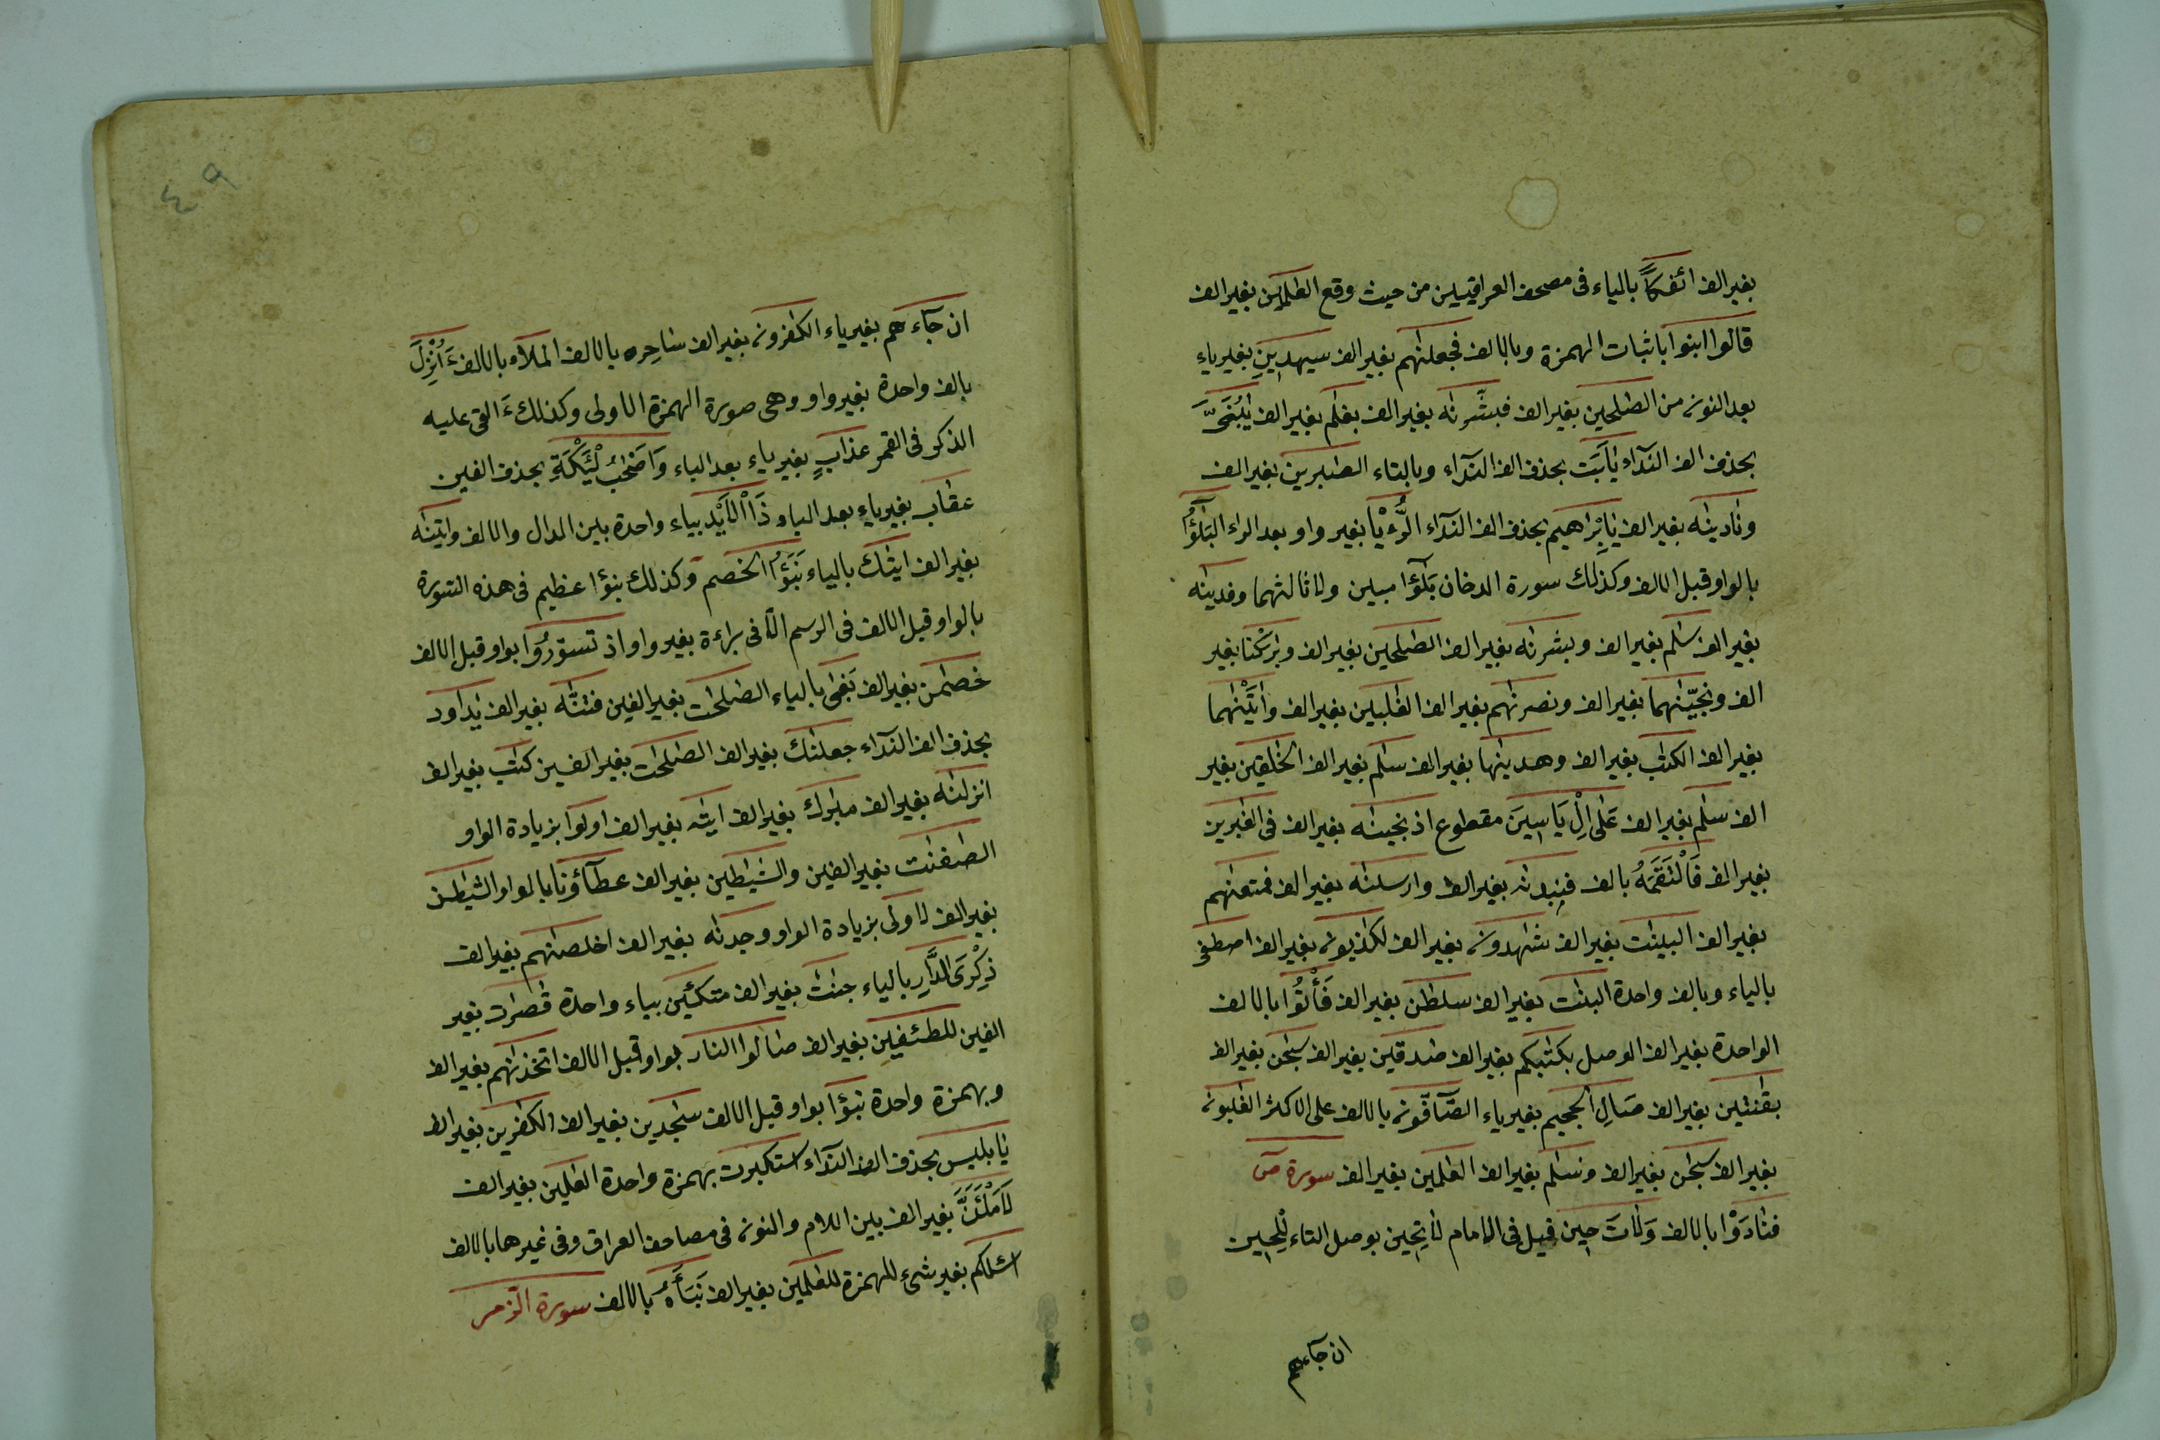 بغير الف ائفكاً بالياء فى مصحف العراقيين من حيث وقع العٰلمين بغير الف
قالوا ابنوا باثبات الهمزة وبالالف فجعلنٰهم بغير الف سيهدينِ بغير ياء
بعد النون من الصٰلحين بغير الف فبشّرنٰه بغير الف بغلٰم بغير الف يٰبُنَىَّ
بحذف الف النّدآء يٰاَبَت بحذف الف النّدآء وبالتاء الصٰبرين بغير الف
ونادينٰه بغير الف يٰاِبْرٰاهيم بحذف الف النّدآء الرُّءْيٰا بغير واو بعد الراء البَلٰٓؤُا
بالواو قبل الالف وكذلك سورة الدخان بَلٰٓؤٌا مبين ولا ثالثهما وفدينٰه
بغير الف سلٰم بغير الف وبشرنٰه بغير الف الصٰلحين بغير الف وبٰرَكْنا بغير
الف ونجّينٰهما بغير الف ونصرنٰهم بغير الف الغٰلبين بغير الف واٰتَيْنٰهما
بغير الف الكتٰب بغير الف وهدينٰهما بغير الف سلٰم بغير الف الخٰلقين بغير
الف سلٰم بغير الف عَلٰى اِلْ يَاسِينَ مقطوع اذ نجينٰه بغير الف فى الغٰبرين
بغير الف فَالْتَقَمَهُ بالف فنبذنٰه بغير الف وارسلنٰه بغير الف فمتعنٰهم
بغير الف البنٰت بغير الف شٰهدون بغير الف لكٰذبون بغير الف اصطفى
بالياء وبالف واحدة البنٰت بغير الف سلطٰن بغير الف فَأْتُوا بالالف
الواحدة بغير الف الوصل بكتٰبكم بغير الف صٰدقين بغير الف سبحٰن بغير الف
بفٰتنين بغير الف صَالِ الجحيم بغير ياء الصّآفّون بالالف على الاكثر الغٰلبون
بغير الف سبحٰن بغير الف وسلٰم بغير الف العٰلمين بغير الف سورة ص
فنٰادَوْا بالالف وَلٰاتَ حِين قيل فى الامام لا تحين بوصل التاء بحين
ان جآءهم
٤٩
ان جآءهم بغير ياء الكٰفرون بغير الف سٰاحِر بالالف الملاء بالالف ءَاُنْزِلَ
بالف واحدة بغير واو وهى صورة الهمزة الاولى وكذلك ءَالقى عليه
الذكر فى القمر عذابِ بغير ياء بعد الباء وَاَصْحٰبُ لْئَيْكَةِ بحذف الفين
عقاب بغير ياء بعد الباء ذَا الْاَيْدِ بياء واحدة بين الدال والالف واتينٰه
بغير الف اتٰىك بالياء نَبَؤُا الخصم وكذلك نبؤا عظيم فى هذه السورة
بالواو قبل الالف فى الرسم الا فى براءة بغير واو اذ تسوّرُوا بواو قبل الالف
خصمٰن بغير الف بَغٰى بالياء الصٰلحٰت بغير الفين فتنّٰه بغير الف يٰداود
بحذف الف النّدآء جعلنٰك بغير الف الصٰلحٰت بغير الفين كتٰب بغير الف
انزلنٰه بغير الف مبٰرك بغير الف ايٰته بغير الف اولوا بزيادة الواو
الصٰفنٰت بغير الفين والشيٰطين بغير الف عطآؤنا بالواو الشيطٰن
بغير الف لاولى بزيادة الواو وجدنٰه بغير الف اخلصنٰهم بغير الف
ذِكْرَى الدَّارِ بالياء جنٰت بغير الف متكئين بياء واحدة قٰصرٰت بغير
الفين للطٰغين بغير الف صٰالوا النار بواو قبل الالف اتخذنٰهم بغير الف
وبهمزة واحدة نبؤا بواو قبل الالف سٰجدين بغير الف الكٰفرين بغير الف
يٰابليس بحذف الف النّدآء استكبرت بهمزة واحدة العٰلمين بغير الف
لَاَمْلَئَنَّ بغير الف بين اللام والنون فى مصاحف العراق وفى غيرها بالالف
اسئلكم بغير شئ للهمزة للعٰلمين بغير الف نَبَأَهُ بالالف سورة الزمر